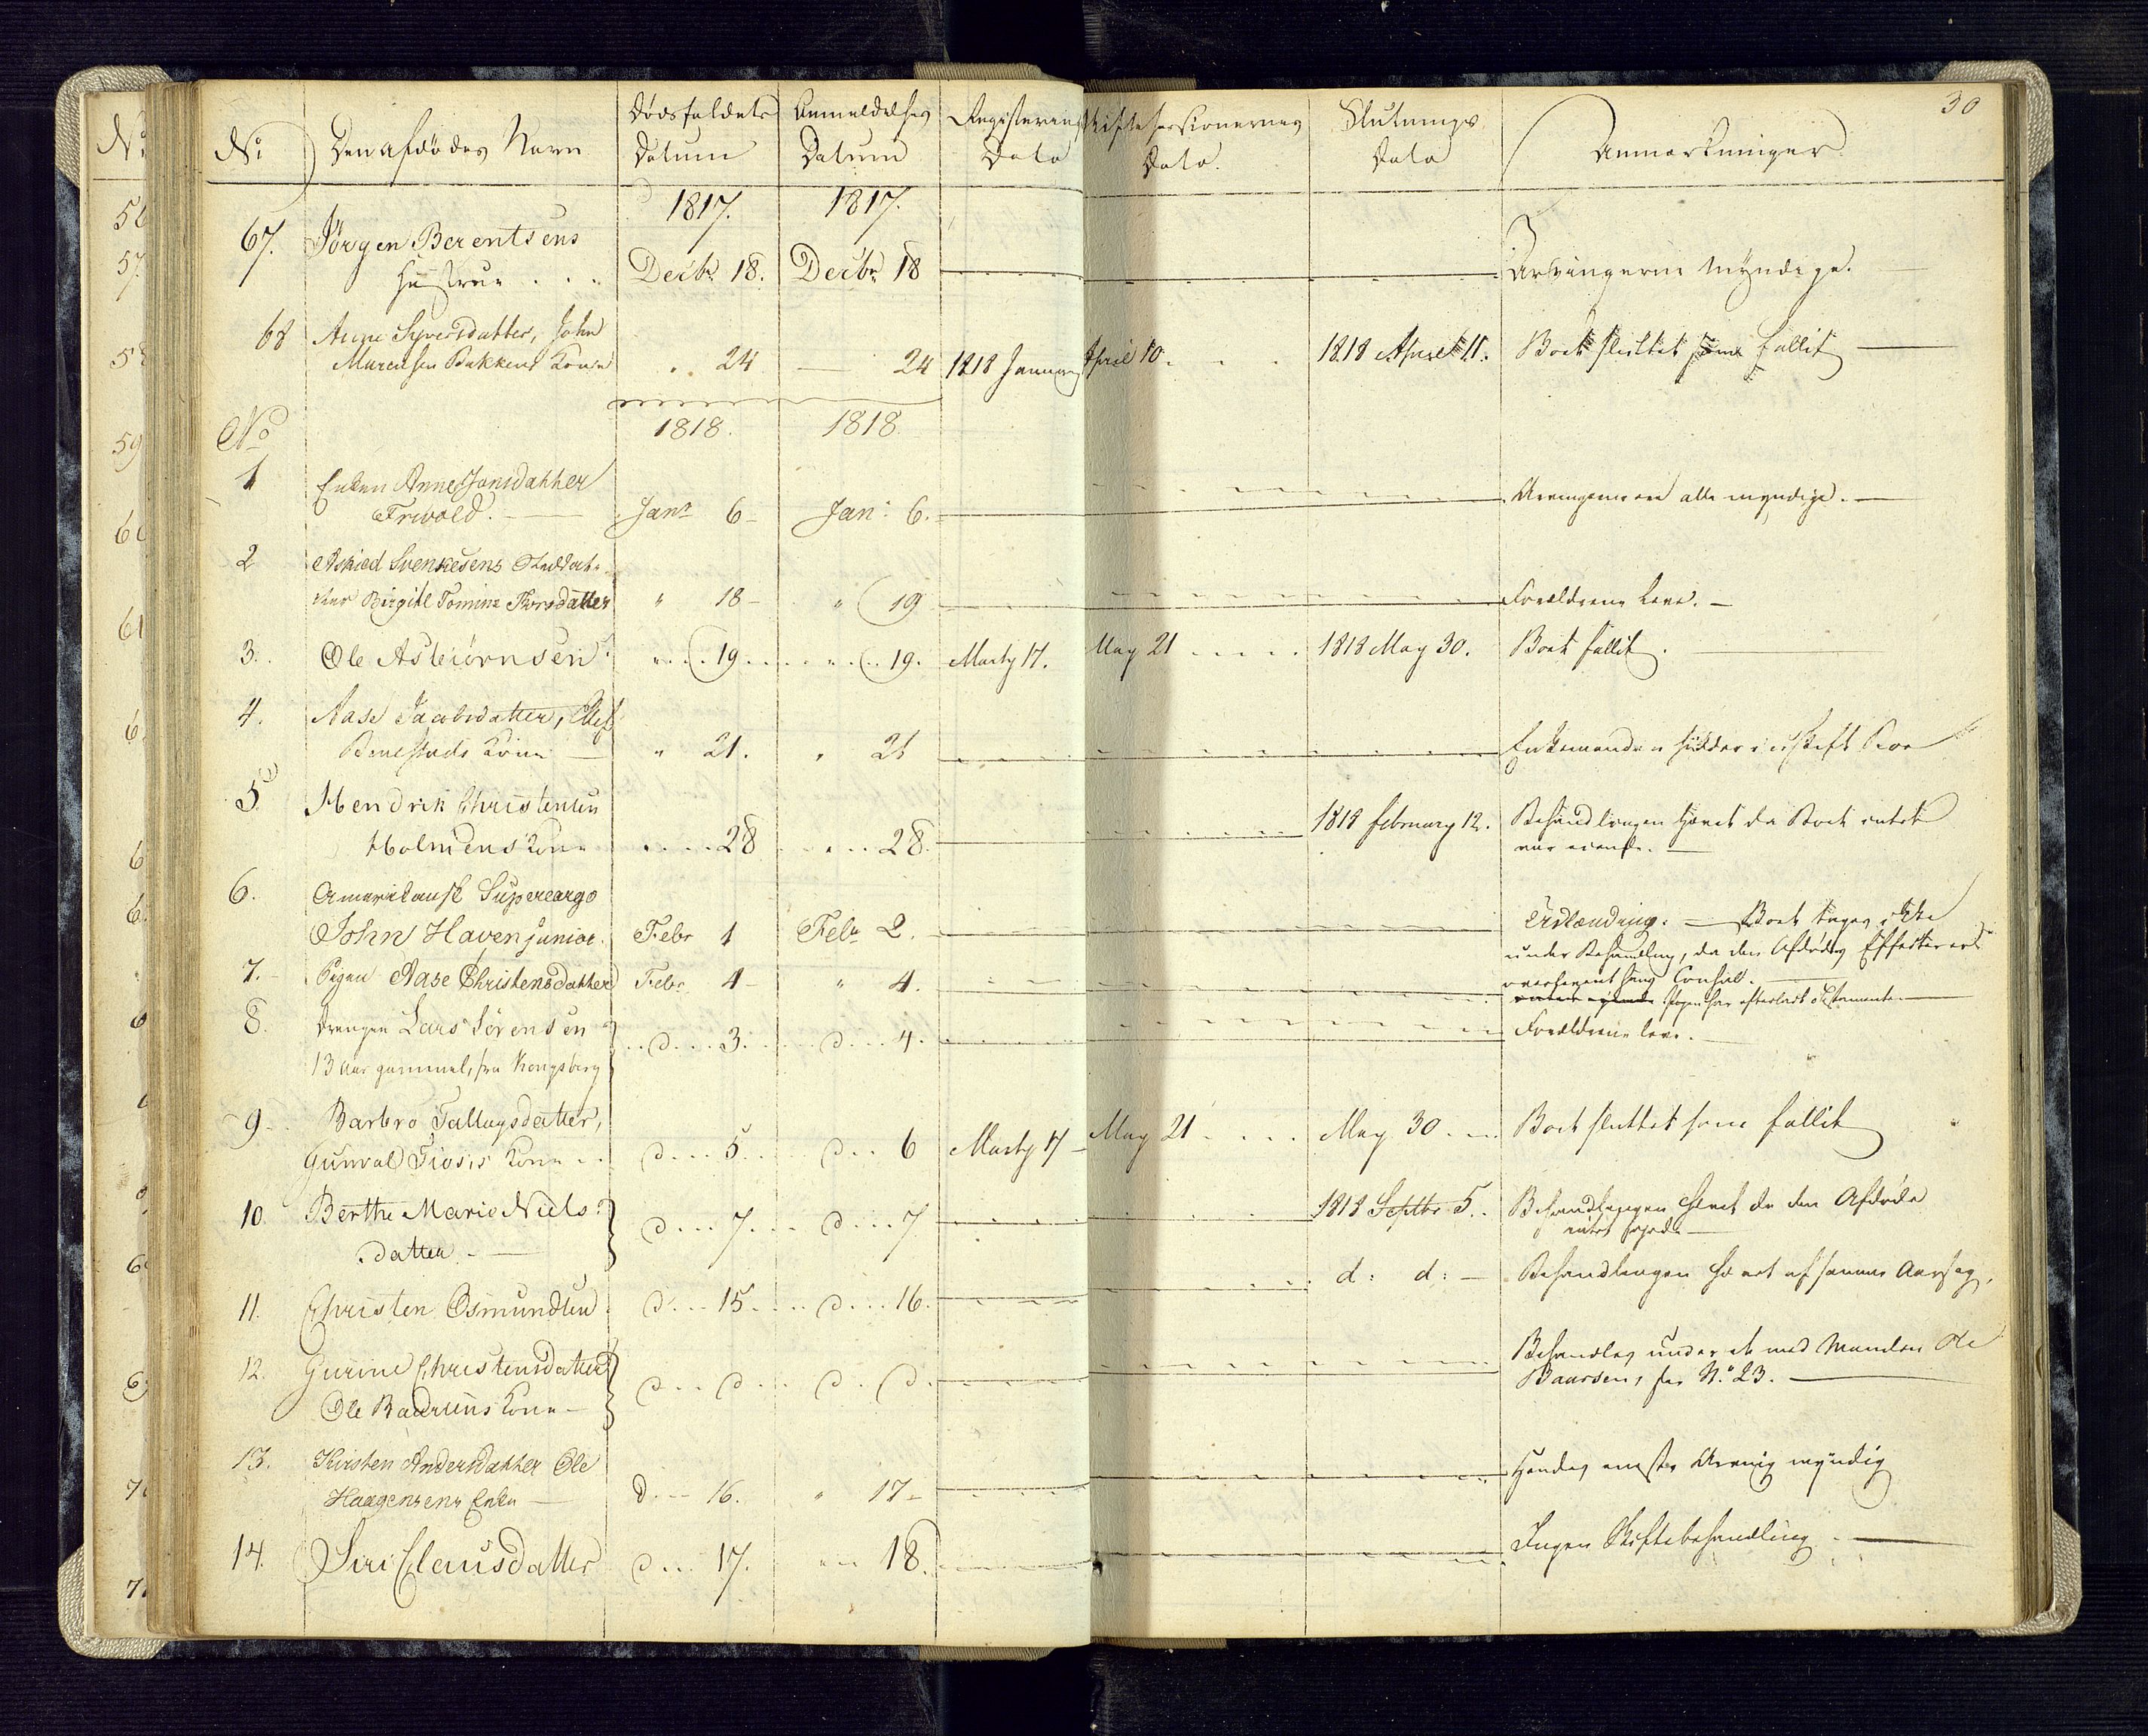 30
No Den afdødes Navn Dødsfaldets Datum Anmeldelses Datum Registerings Dato Skiftesessionernes Dato. Slutnings Dato Anmærkninger
1817. 1817.
67. Jørgen Berentsens
Hustrue . . . Decbr 18. Decbr 18 Arvingerne Myndige.
68 Anne Syversdatter, John
Marcusen Bakkens Kone 24 24 1818 January April 10. 1818 April 11. Boet sluttet som fallit
No 1818. 1818
1 Enken Anne Jonsdatter
Frivold. Janr 6 Jan: 6. Arvingerne ere alle myndige.
2 Askied Svenkesens
Birgitl Tomine Thorsdatter " 18 " 19 Forældrene leve.
3. Ole Asbiørnsen 19 19. Marty 17. May 21 1818 May 30. Boet fallit.
4. Aase Jacobsdatter,
Kone " 21. " 21 Enkemanden sidder i uskift Boe
5 Hendrik Christensen
Holmens Kone 28 28. 1818 February 12. Behandlingen hævet da Boet intet
var eiende.
6. Amerikansk Supercargo
John Haven junior. Febr 1 Febr 2. Udlænding. Boet tages ikke
under Behandling, da den Afdødes Effecter ere
overleveret hans Consul.
7. Pigen Aase Christensdatter Febr 4 " 4. Pigen har efterladt Testamente.
8. Drengen Lars Sørensen
13 Aar gammel, fra Kongsberg d 3. d 4. Forældrene leve.
9. Barbro Tallagsdatter,
Gunvald Tiosis Kone d 5 d 6 Marty 17 May 21 May 30 Boet sluttet som fallit
10. Berthe Marie Niels-
datter d 7 d 7 1818 Septbr 5. Behandlingen hævet da den Afdøde
intet eyede
11. Christen Osmundsen d 15 d 16. d: d: Behandlingen hævet af samme Aarsag.
12. Gurine Christensdatter
Ole Baarsens Kone d d d d. Behandles under et med Manden Ole
Baarsen, see No 23.
13. Kirsten Andersdatter Ole
Haagensens Enke d 16. " 17 Hendes eneste Arving myndig
14. Siri Clausdatter d 17. 18. Ingen Skiftebehandling.